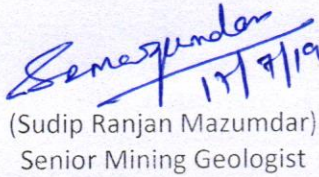 Semazumdar
17/7/19
(Sudip Ranjan Mazumdar)
Senior Mining Geologist